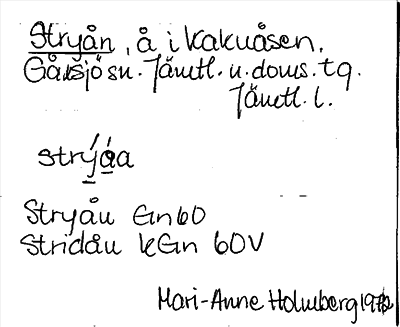 Stryån, å i Kakuåsen,
Gåxsjö sn. Jämtl. n. doms. tg.
Jämtl. l.
strýa̱a
Stryåu En 60
Stridåu kEn 60V
Mari-Anne Holmberg 1972